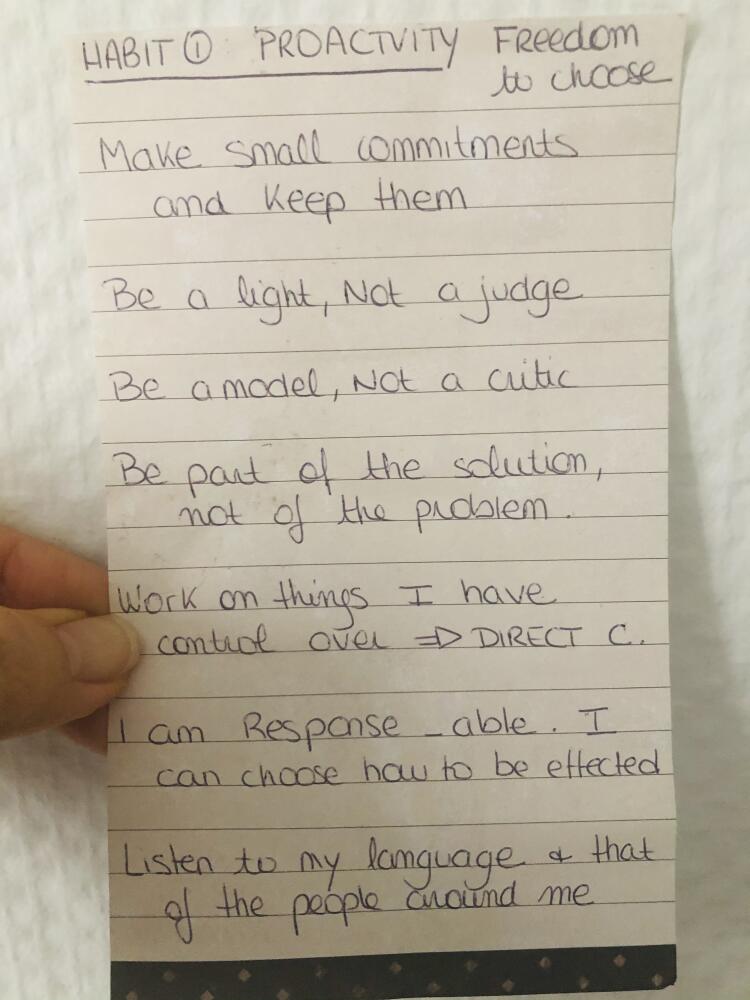 HABIT ① : PROACTVITY Freedom
to choose
Make small commitments
and keep them
Be a light, Not a judge
Be a model, Not a critic
Be part of the solution,
not of the problem.
Work on things I have
control over ⇒ DIRECT C.
I am Response_able. I
can choose how to be effected
Listen to my language & that
of the people around me